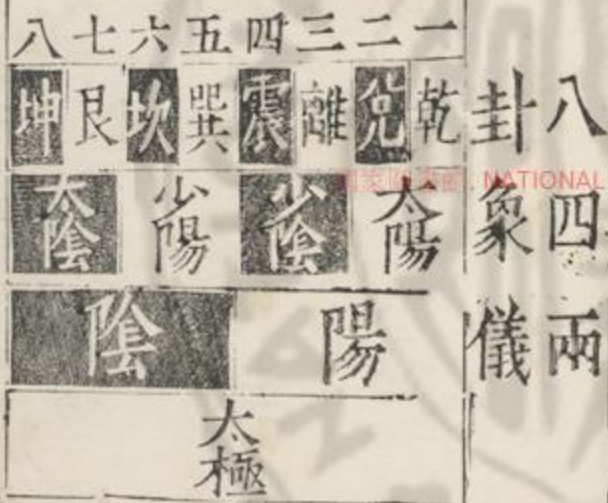 八卦
四象
兩儀
一二三四五六七八
乾兌離震巽坎艮坤
太陽 少陰 少陽 太陰
陽 陰
太極
NATIONAL